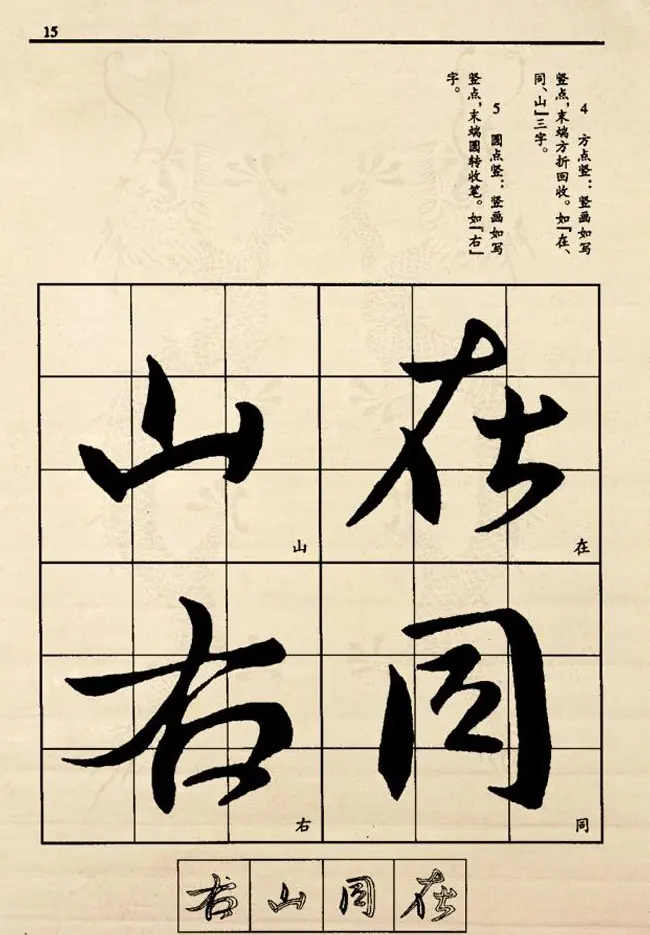 15
4 方点竖：竖画如写
竖点，末端方折回收。如『在、
同、山』三字。
5 圆点竖：竖画如写
竖点，末端圆转收笔。如『右』
字。
在
在
同
同
山
山
右
右
右 山 同 在